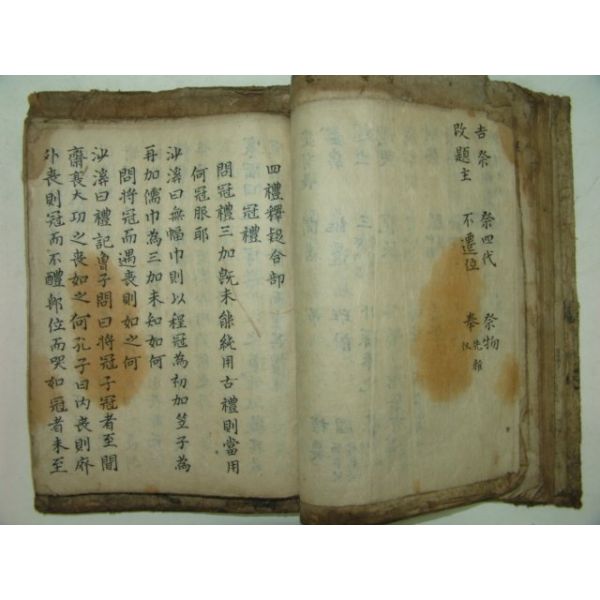 吉祭 祭四代 祭物
改題主 不遷位 奉先雜儀
四禮釋疑合部
冠禮
問冠禮三加既未能純用古禮則當用
何冠服耶
沙溪曰無幅巾則以程冠為初加笠子為
再加儒巾為三加未知如何
問将冠而遇喪則如之何
沙溪曰禮記曽子問曰将冠子冠者至聞
齋衰大功之喪如之何孔子曰內喪則廢
外喪則冠而不醴
位而哭如冠者未至